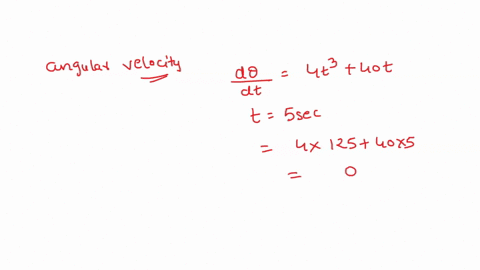 angular velocity
dθ/dt = 4t³ + 40t
t = 5sec
= 4 × 125 + 40×5
= 0